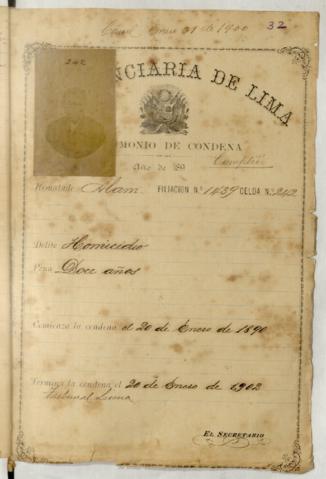 Enero 31 de 1900
32
242
NCIARIA DE LIMA
MONIO DE CONDENA
Año de 189
Cumplió
Rematado Alam FILIACION N.º 1439 CELDA N.º 242
Delito Homicidio
Pena Doce años
Comienza la condena el 20 de Enero de 1890
Termina la condena el 20 de Enero de 1902
Tribunal Lima
EL SECRETARIO